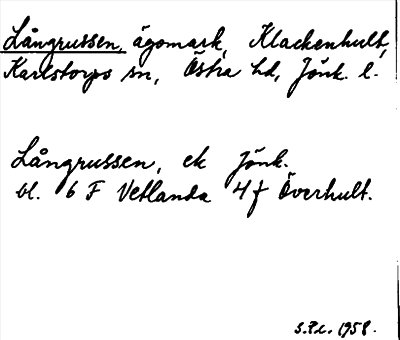 Långrussen, ägomark, Klackenhult,
Karlstorps sn, Östra hd, Jönk. l.
Långrussen, ek Jönk.
bl. 6 F Vetlanda 4 f Överhult.
1958.